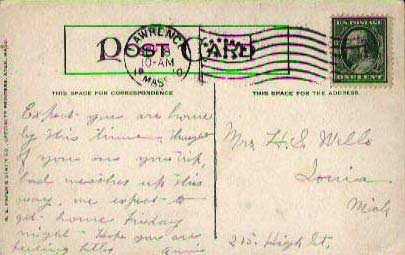 LAWRENCE
10-AM
19 10
MASS
POST CARD
U.S. POSTAGE
ONE CENT
THIS SPACE FOR CORRESPONDENCE
THIS SPACE FOR THE ADDRESS.
Expect you are home
by this time.
of you on your trip,
bad weather up this
way. we expect to
get home Friday
night - Hope you are
feeling
Mrs H. S. Wells
Ionia
Mich
215. High St.